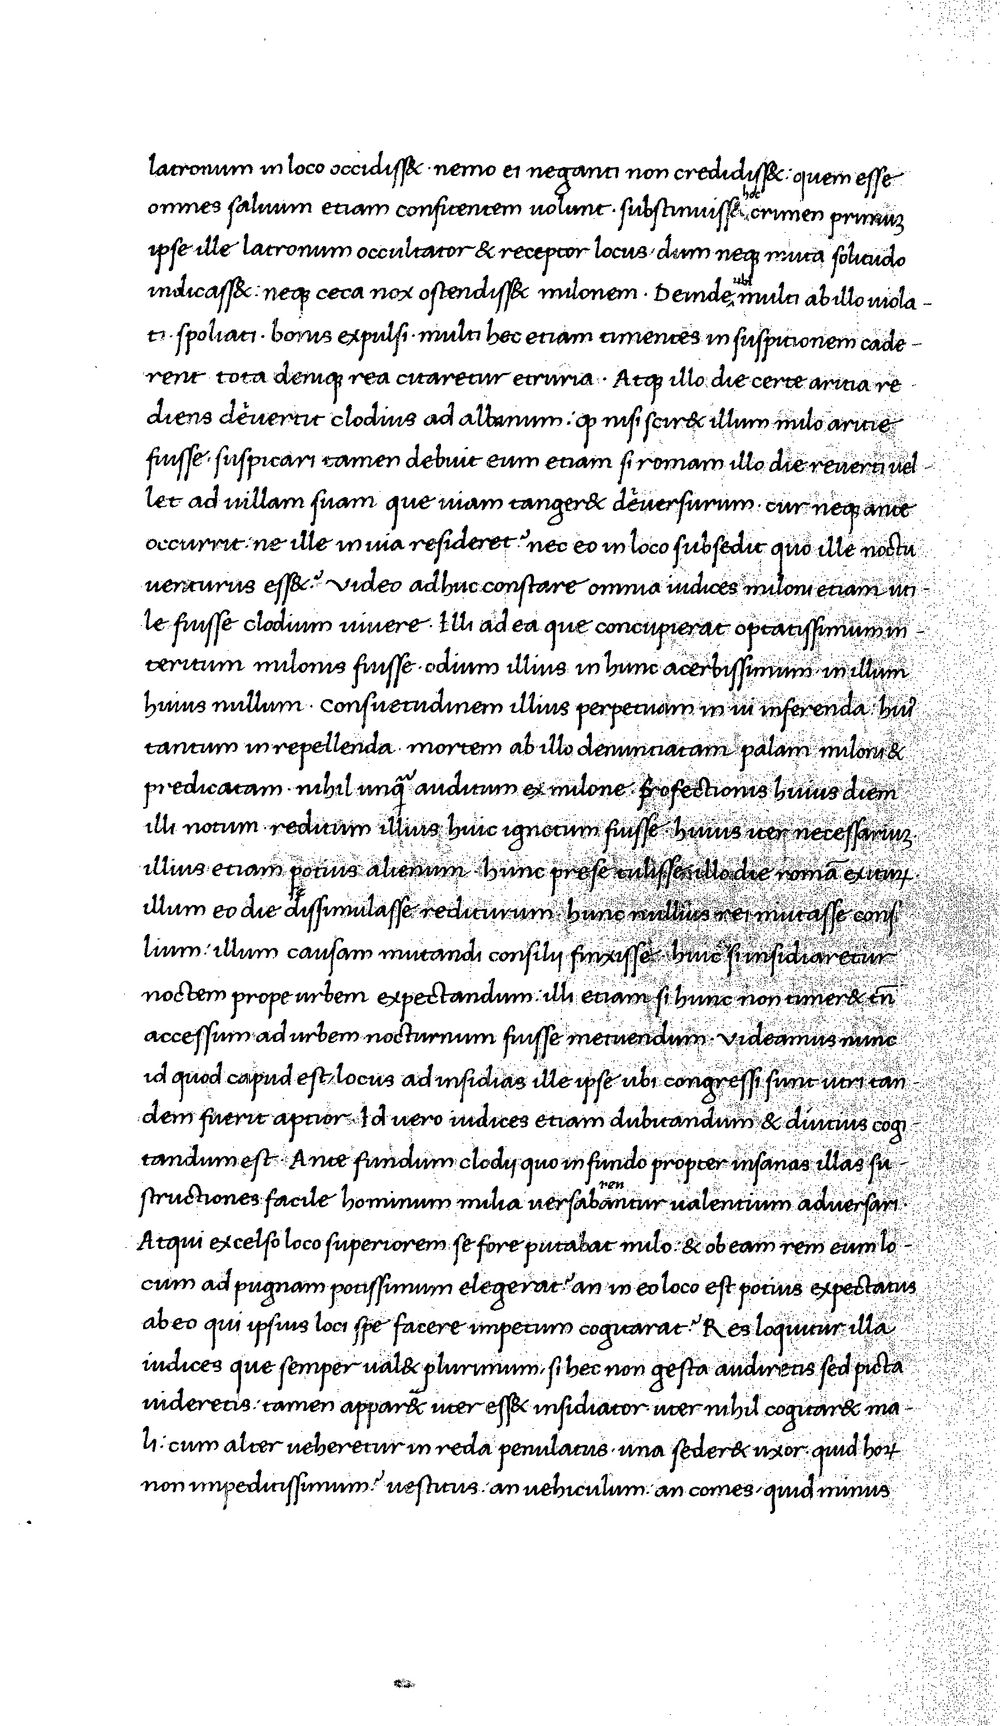 latronum in loco occidiss& · nemo ei neganti non credidiss& : quem esse
omnes saluum etiam confitentem uolunt · substinuiss& hoc crimen primuꝫ
ipse ille latronum occultator & receptor locus · dum neqꝫ muta solitudo
indicass& : neqꝫ ceca nox ostendiss& milonem · Deinde ubi multi ab illo uiola-
ti · spoliati · bonis expulsi · multi hec etiam timentes in suspitionem cade-
rent tota deniqꝫ rea citaretur etruria · Atqꝫ illo die certe aricia re-
diens deuertit clodius ad albanum : ꝙ nisi scir& illum milo aricie
fuisse · suspicari tamen debuit eum etiam si romam illo die reuerti uel-
let ad uillam suam que uiam tanger& deuersurum · cur neqꝫ ante
occurrit · ne ille in uia resideret ? nec eo in loco subsedit quo ille noctu
uenturus ess& ? Video adhuc constare omnia iudices miloni etiam uti-
le fuisse clodium uiuere · Illi ad ea que concupierat optatissimum in-
teritum milonis fuisse · odium illius in hunc acerbissimum · in illum
huius nullum · Consuetudinem illius perpetuam in ui inferenda · huiꝰ
tantum in repellenda · mortem ab illo denuntiatam palam miloni &
predicatam · nihil unq̃ auditum ex milone · Profectionis huius diem
illi notum · reditum illius huic ignotum fuisse · huius iter necessariuꝫ ·
illius etiam potius alienum · hunc prese tulisse illo die romā exituꝝ ·
illum eo die dissimulasse rediturum · hunc nullius rei mutasse consi
lium : illum causam mutandi consilij finxisse · huic si insidiaretur
noctem prope urbem expectandum · illi etiam si hunc non timer& tn̄
accessum ad urbem nocturnum fuisse metuendum · Videamus nunc
id quod capud est, locus ad insidias ille ipse ubi congressi sunt utri tan-
dem fuerit aptior · Id uero iudices etiam dubitandum & diutius cogi-
tandum est · Ante fundum clodij quo in fundo propter insanas illas su-
structiones facile hominum milia uersabanturren ualentium aduersari ·
Atqui excelso loco superiorem se fore putabat milo · & ob eam rem eum lo-
cum ad pugnam potissimum elegerat ? an in eo loco est potius expectatus
ab eo qui ipsius loci spe facere impetum cogitarat ? Res loquitur illa
iudices que semper ual& plurimum, si hec non gesta audiretis sed picta
uideretis : tamen appar& uter ess& insidiator uter nihil cogitar& ma-
li : cum alter ueheretur in reda penulatus · una seder& uxor · quid hoꝝ
non impeditissimum ? uestitus · an uehiculum · an comes · quid minus